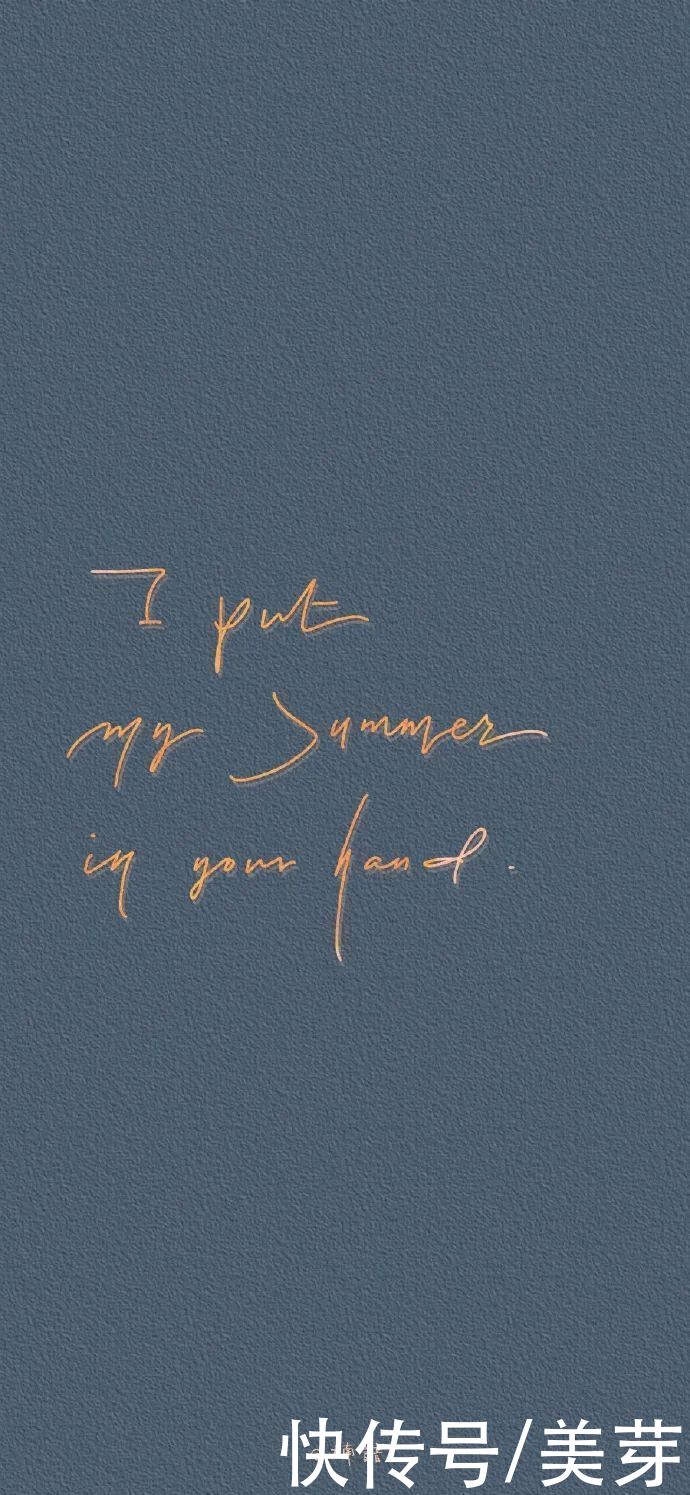 I put
my Summer
in your hand.
快传号/美芽